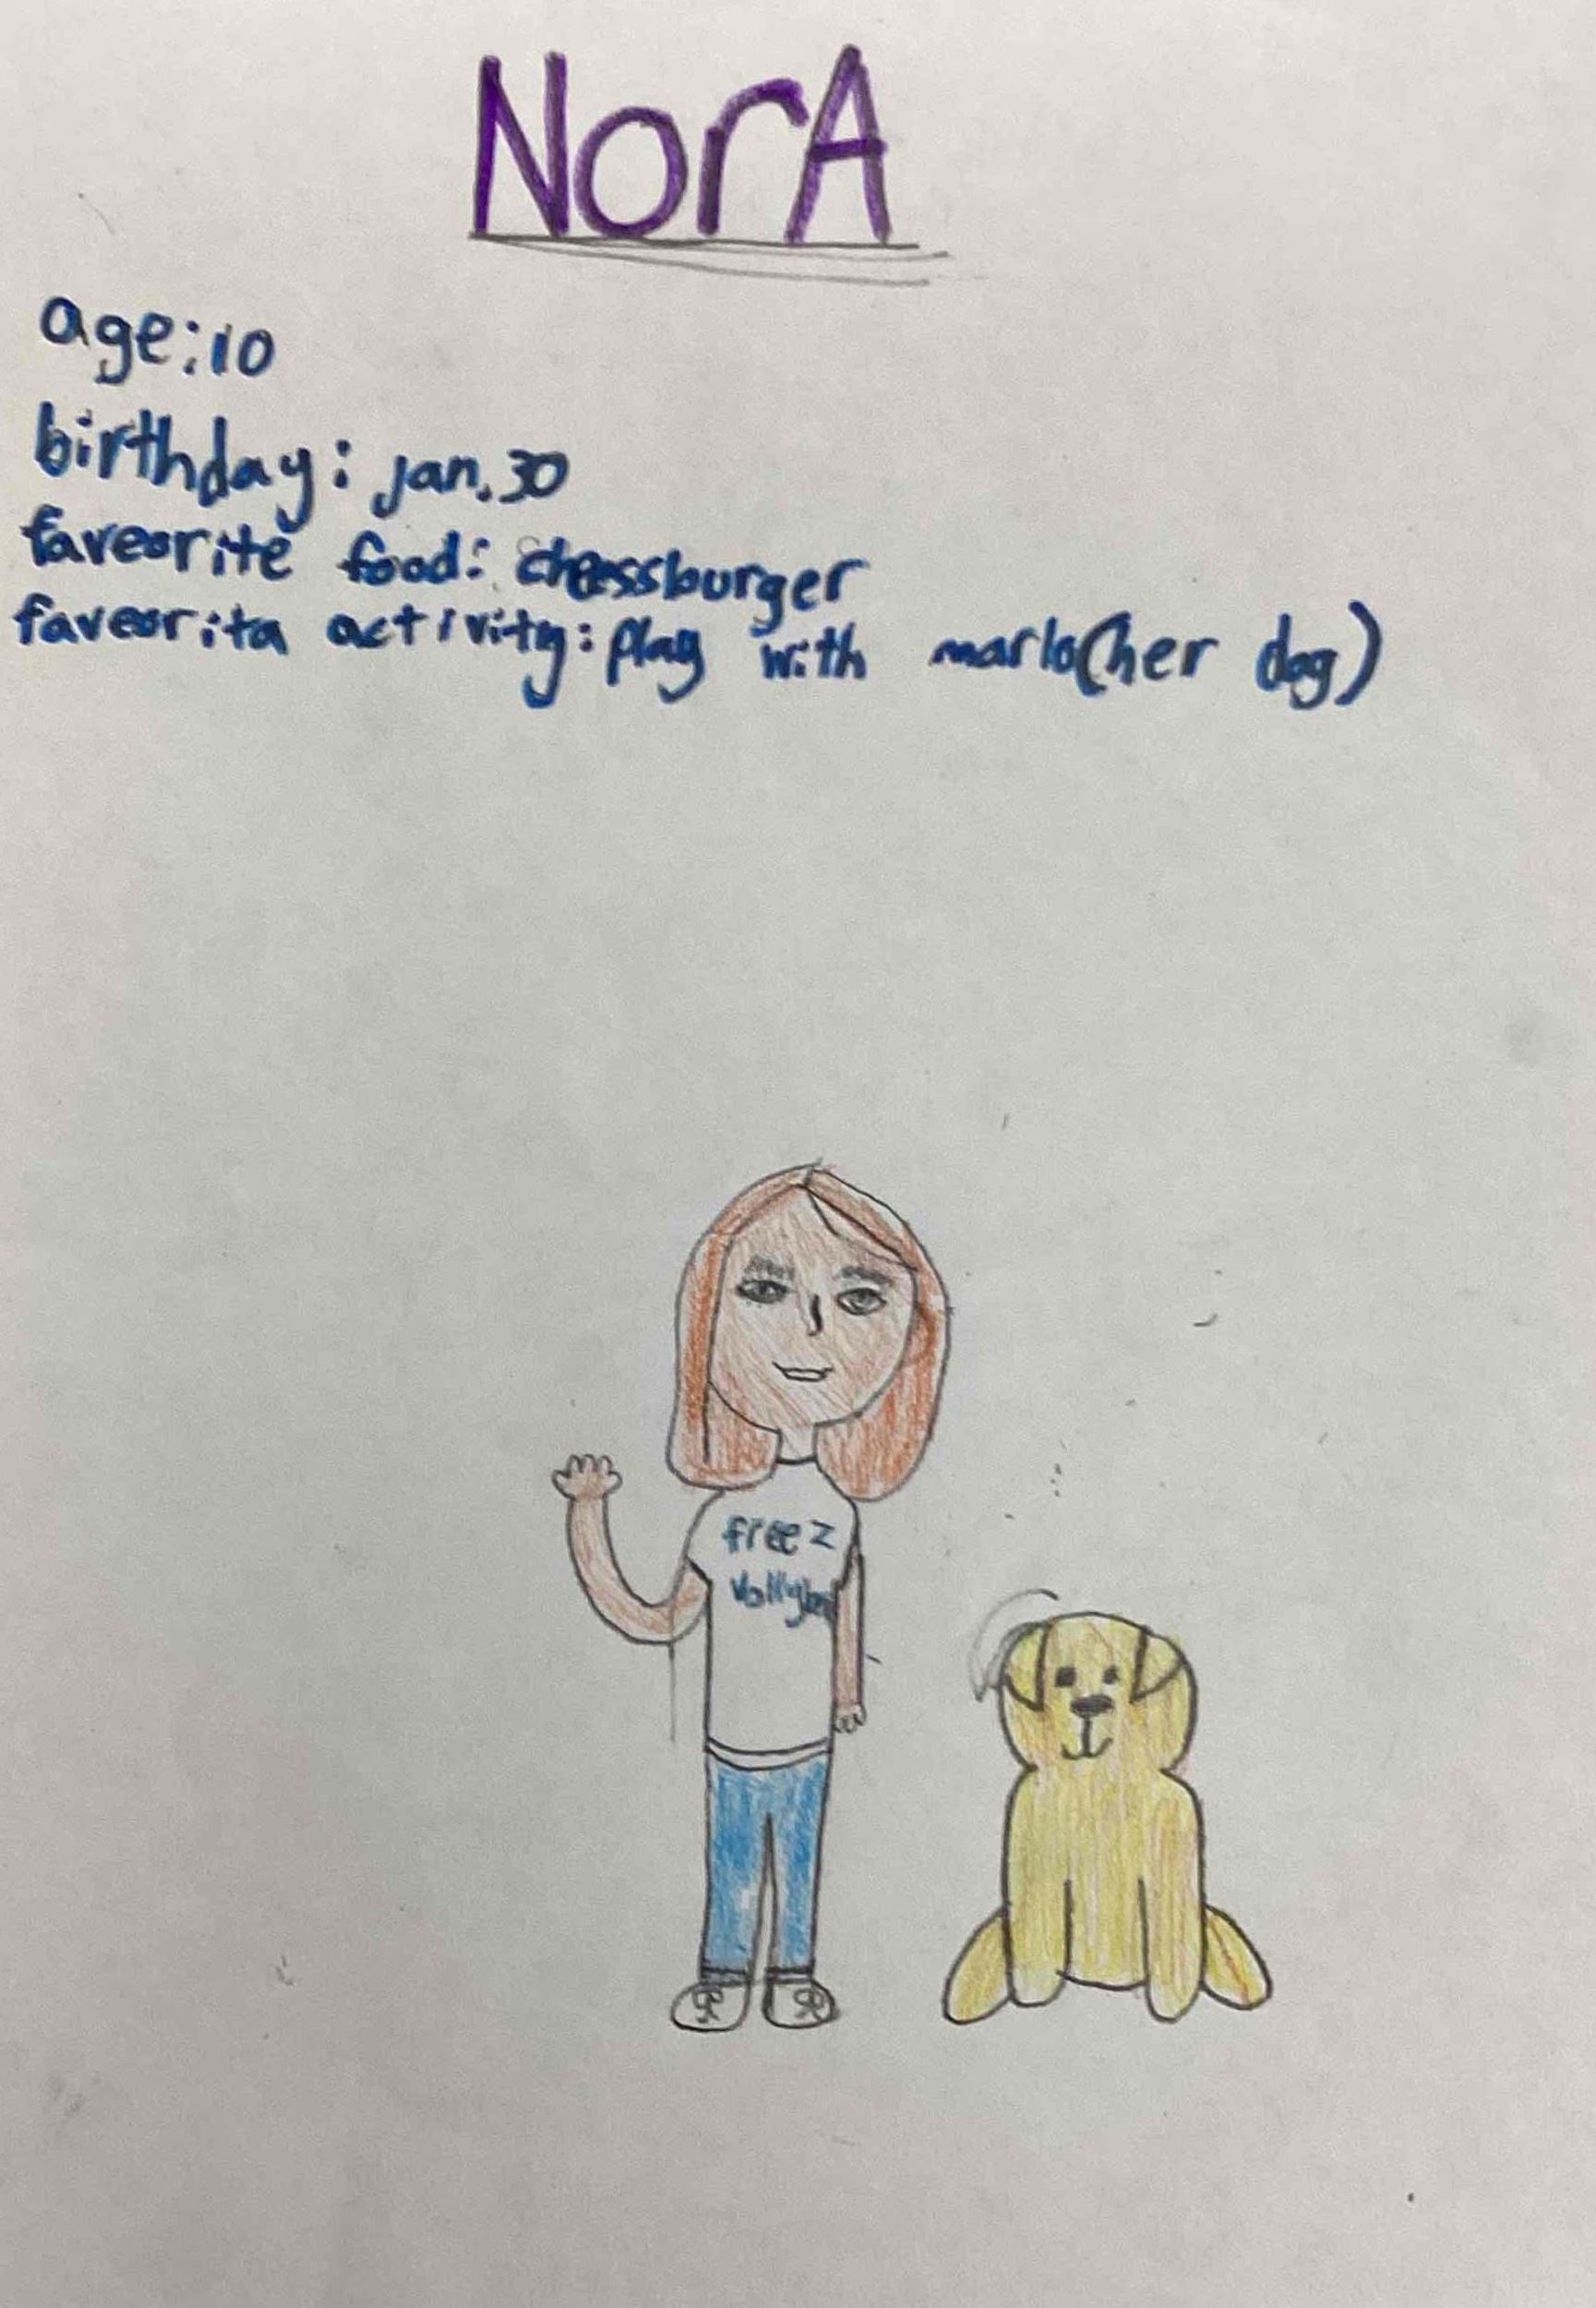 NorA
age:10
birthday: jan.30
faveorite food: cheessburger
faveorita activity: play with marlo(her dog)
freez